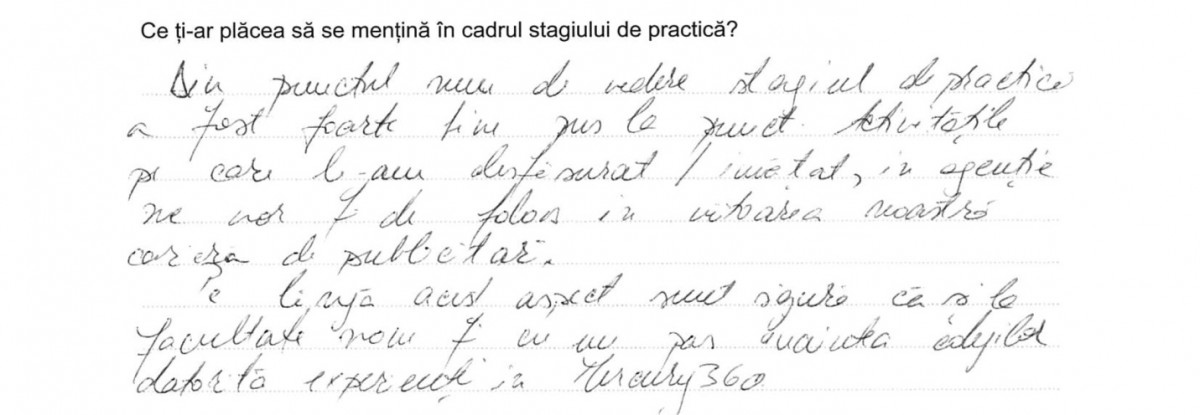 Ce ți-ar plăcea să se mențină în cadrul stagiului de practică?
Din punctul meu de vedere stagiul de practică
a fost foarte bine pus la punct. Activitățile
pe care le-am desfășurat / învățat, în agenție
ne vor fi de folos în viitoarea noastră
carieră de publicitar.
Pe lângă acest aspect sunt sigură că și la
facultate vom fi cu un pas înaintea colegilor
datorită experienței în Mercury360